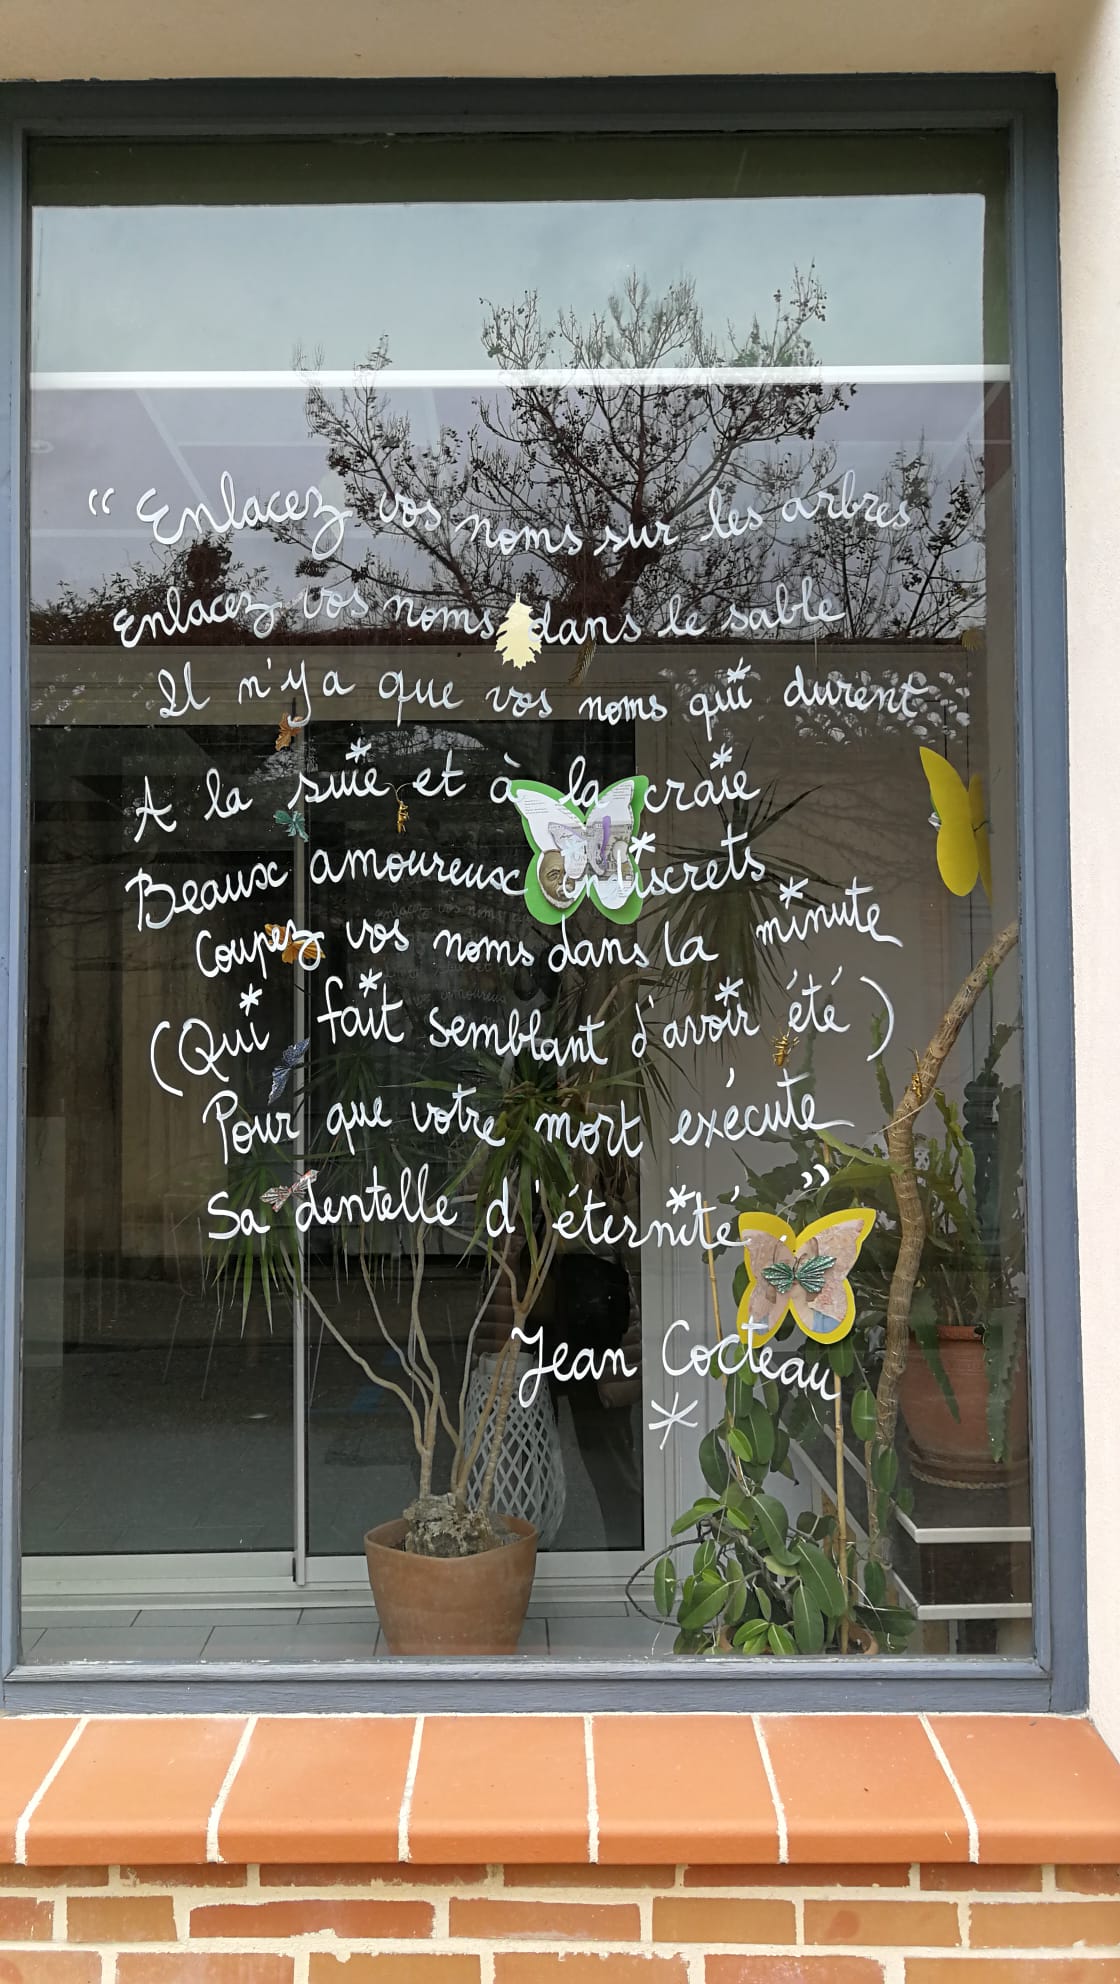 “ Enlacez vos noms sur les arbres
Enlacez vos noms dans le sable
Il n'y a que vos noms qui durent
A la suie et à la craie
Beaux amoureux indiscrets
Coupez vos noms dans la minute
(Qui fait semblant d'avoir été)
Pour que votre mort exécute
Sa dentelle d'éternité. ”
Jean Cocteau